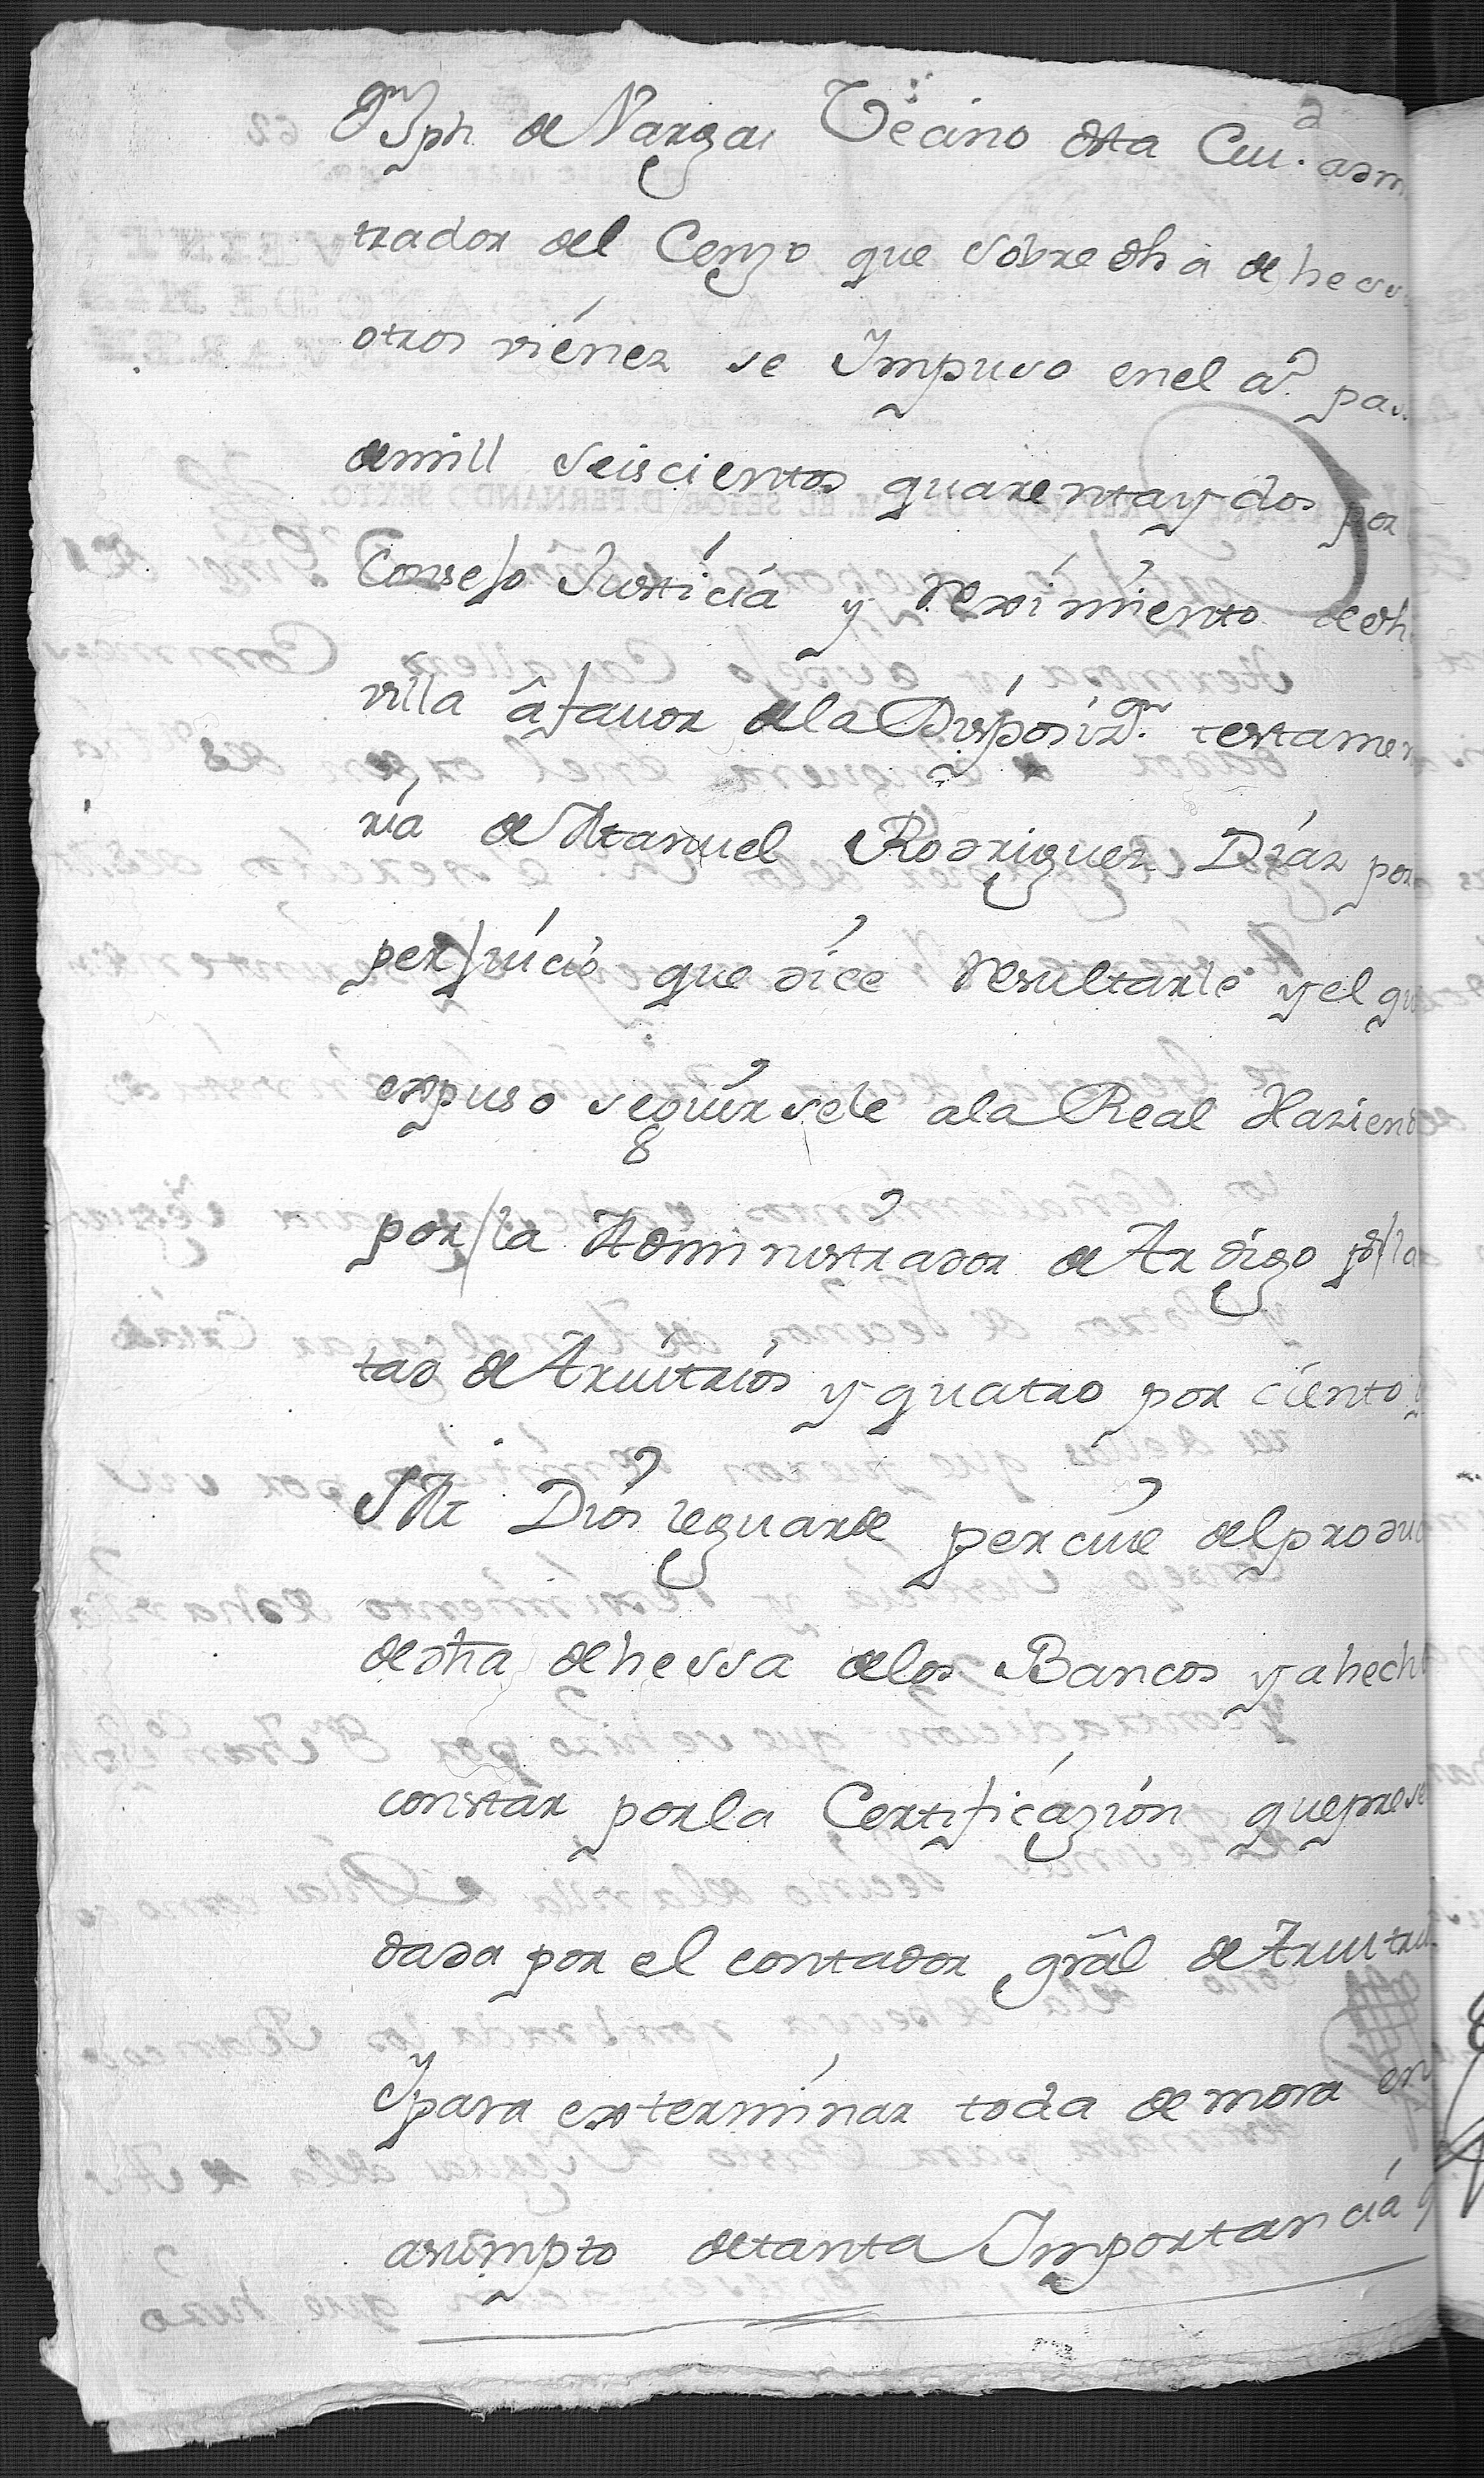 Dn Jph de Vargas Vecino desta Ciud. adm
trador del Cenzo que sobre dha dehess
otros vienez se Ympuso enel ao. pas
demill seiscientos quarentay dos por
Consejo Justicia y Reximiento dedh
villa â favor dela Disposizon. testamen
ria de Manuel Rodriguez Diaz por
perjuicio que dice Resultarle y el qu
expuso seguirsele ala Real Haziend
por la Administrador de Ardigo
tad de Aruitrios y quatro por ciento
SM Dios leguarde percive delprodu
dedha dehessa delos Bancos y a hech
constar porla Certificazion que prese
dada por el contador grâl de Aruitri
Ypara exterminar toda demora en
asumpto detanta Ymportancia q